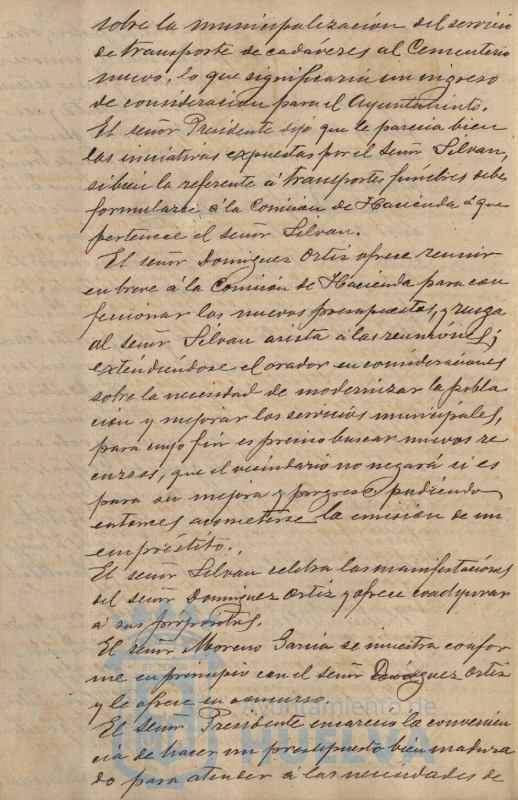 sobre la municipalización del servicio
de transporte de cadáveres al Cementerio
nuevo, lo que significaria un ingreso
de consideración para el Ayuntamiento.
El señor Presidente dijo que le parecia bien
las iniciativas expuestas por el señor Silvan,
si bien la referente á transportes fúnebres debe
formularse á la Comisión de Hacienda á que
pertenece el señor Silvan.
El señor Dominguez Ortiz ofrece reunir
en breve á la Comisión de Hacienda para con
feccionar los nuevos presupuestos, y ruega
al señor Silvan asista á las reuniones;
extendiéndose el orador en consideraciones
sobre la necesidad de modernizar la pobla
ción y mejorar los servicios municipales,
para cuyo fin es preciso buscar nuevos re
cursos, que el vecindario no negará si es
para su mejora y progreso, pudiendo
entonces acometerse la emisión de un
empréstito.
El señor Silvan celebra las manifestaciones
del señor Dominguez Ortiz y ofrece coadyuvar
á sus propósitos.
El señor Moreno Garcia se muestra confor
me en principio con el señor Dominguez Ortiz
y le ofrece su concurso.
El señor Presidente encarece la convenien
cia de hacer un presupuesto bien madura
do para atender á las necesidades de
Ayuntamiento de
HUELVA